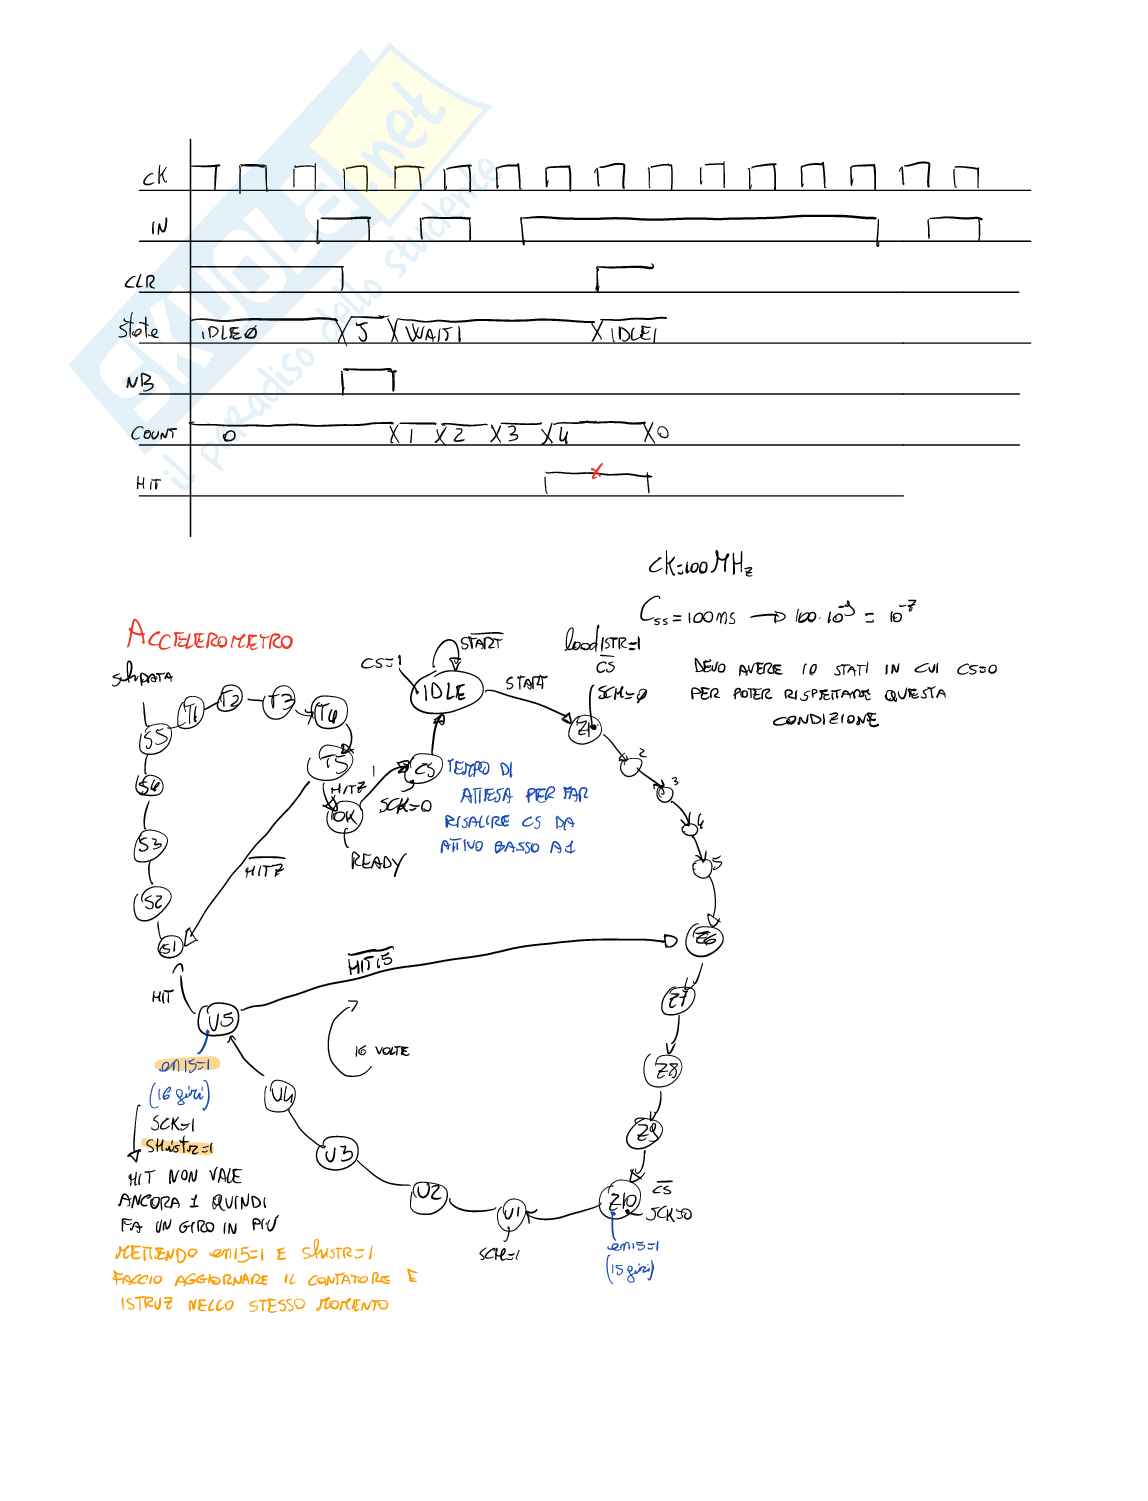 SKUOLA.net
il paradiso dello studente
CK
IN
CLR
State IDLE0 J WAIT1 IDLE1
NB
COUNT 0 1 2 3 4 0
HIT
CK=100MHz
Css = 100ns → 100·10⁻⁹ = 10⁻⁷
DEVO AVERE 10 STATI IN CUI CS=0
PER POTER RISPETTARE QUESTA
CONDIZIONE
ACCELEROMETRO
ShDATA
CS=1
START
IDLE
START
loadISTR=1
CS
SCK=0
Z1
2
3
4
5
Z6
Z7
Z8
Z9
Z10
CS
SCK=0
en15=1
(15 giri)
U1
SCK=1
U2
U3
U4
U5
HIT15
16 VOLTE
HIT
en15=1
(16 giri)
SCK=1
SHistr=1
HIT NON VALE
ANCORA 1 QUINDI
FA UN GIRO IN PIÙ
METTENDO en15=1 E ShISTR=1
FACCIO AGGIORNARE IL CONTATORE E
ISTRUZ NELLO STESSO MOMENTO
S1
S2
S3
S4
S5
T1
T2
T3
T4
T5
HIT7
HIT7
OK
READY
1
CS
SCK=0
TEMPO DI
ATTESA PER FAR
RISALIRE CS DA
ATTIVO BASSO A 1